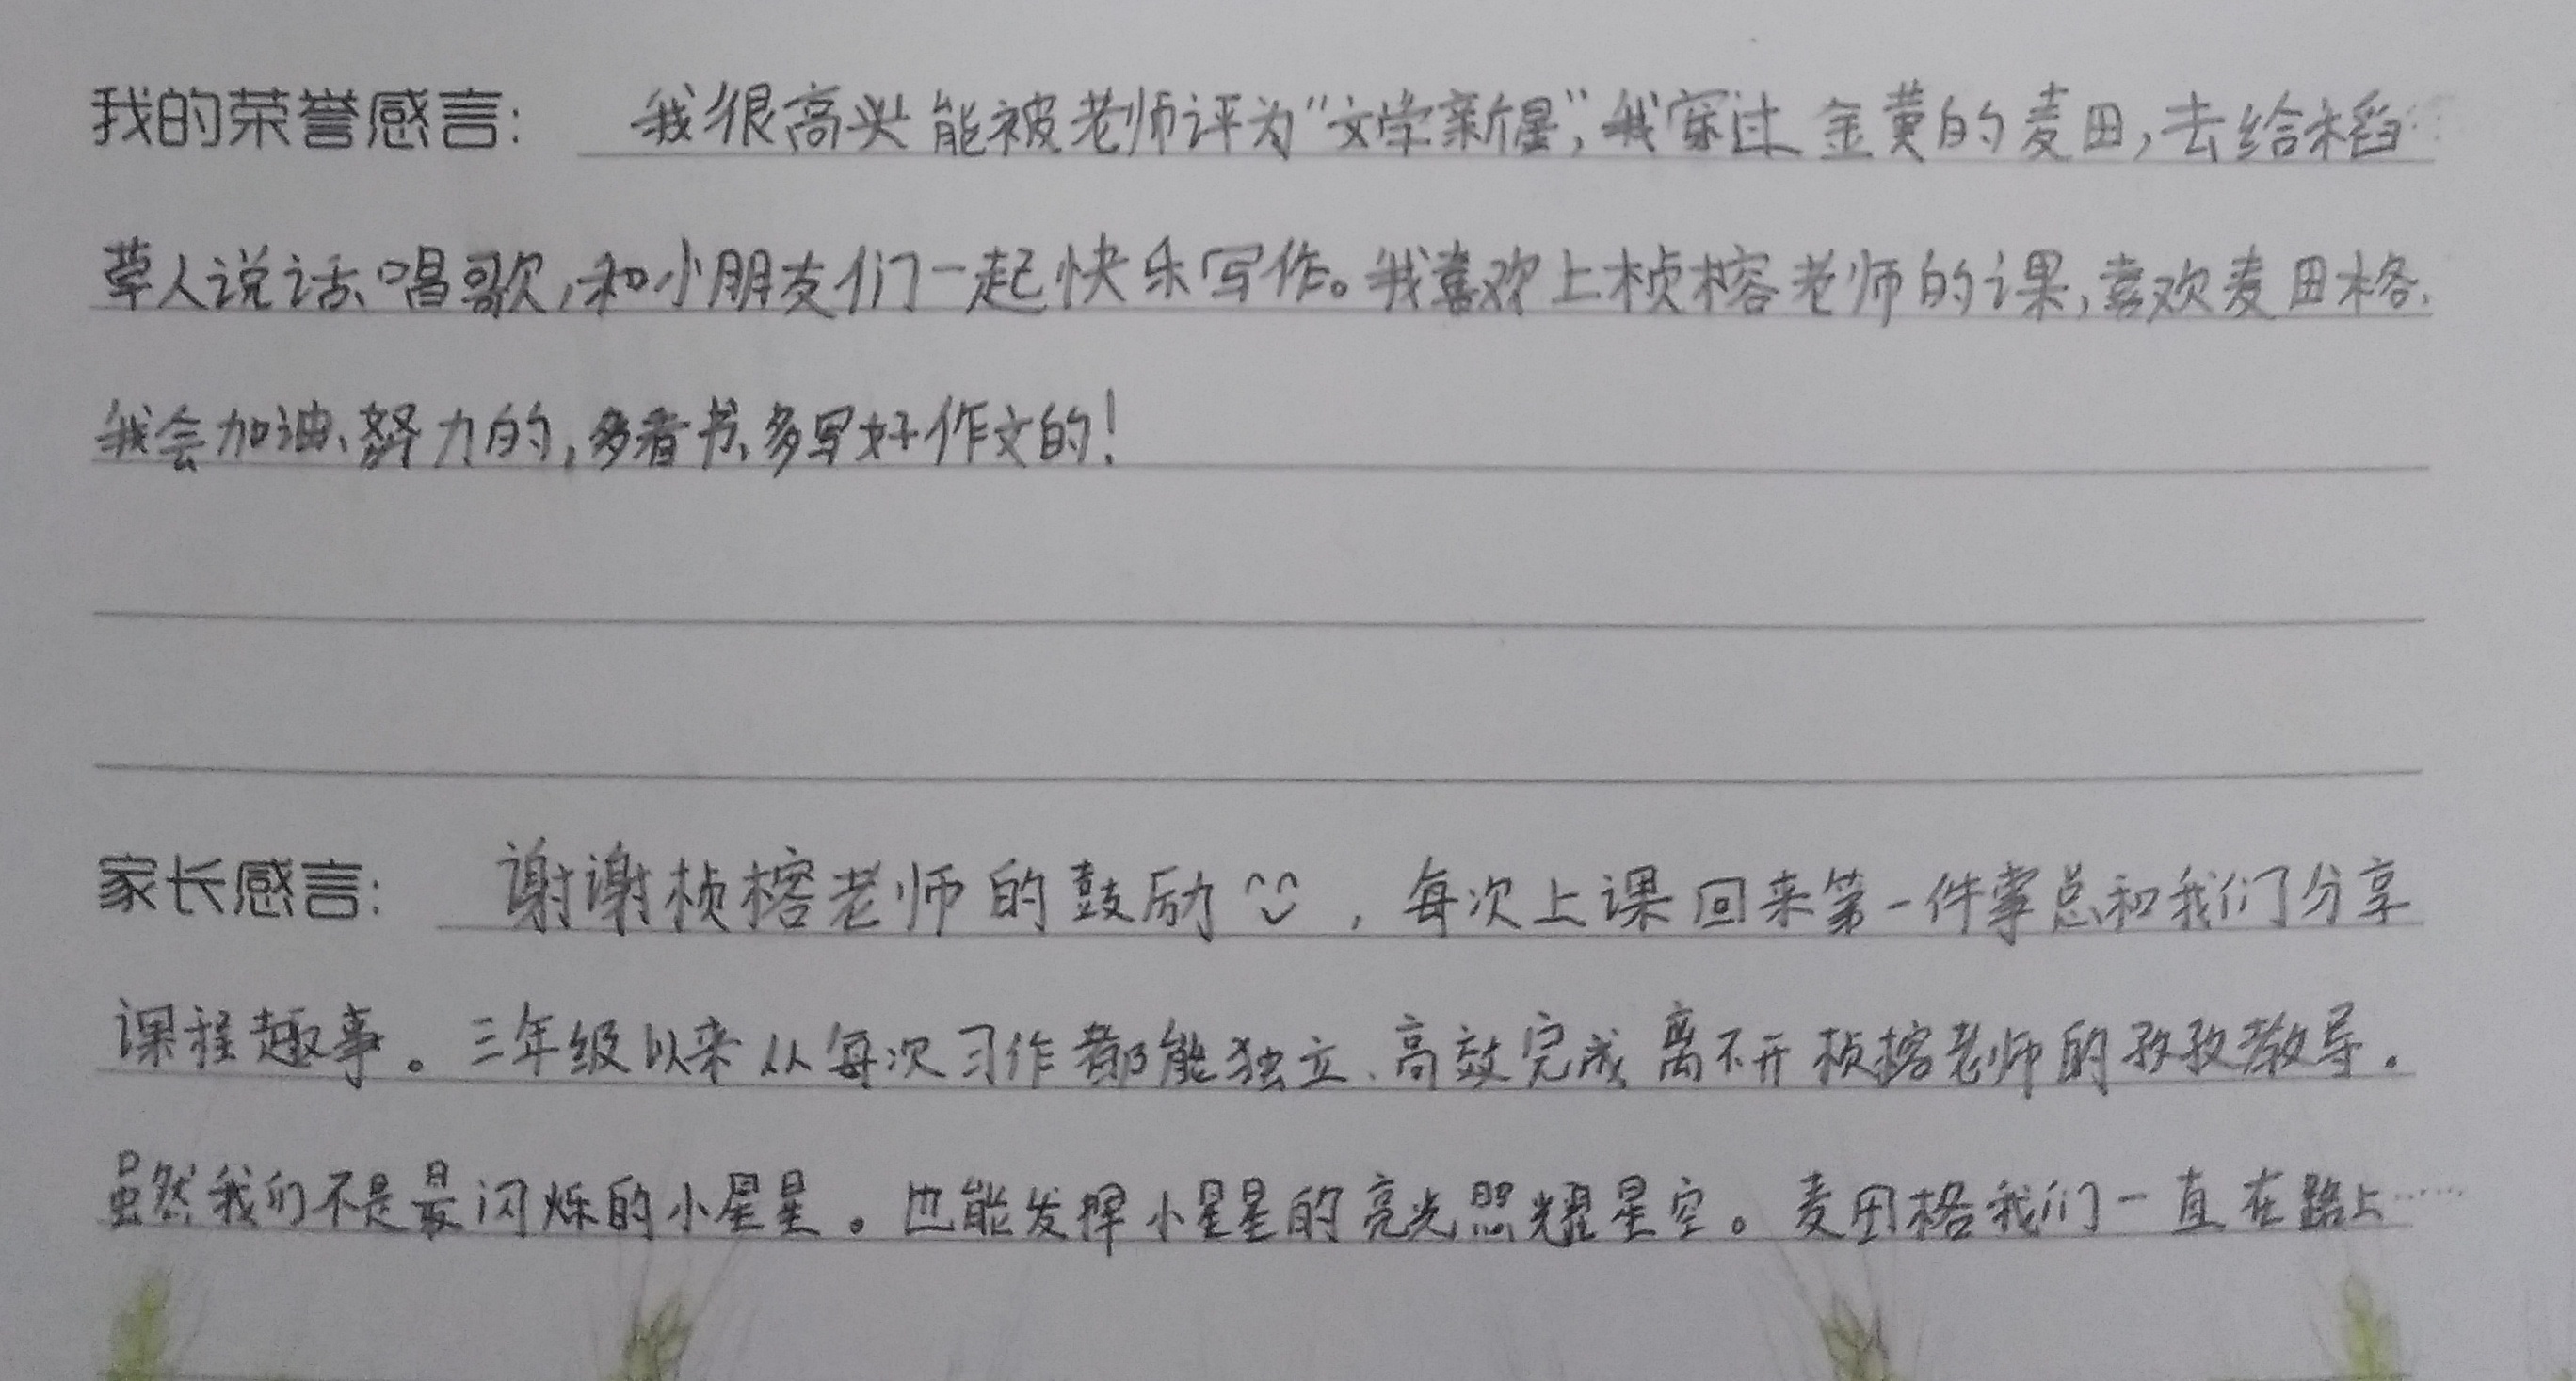 我的荣誉感言： 我很高兴能被老师评为“文学新星”，我穿过金黄的麦田，去给稻
草人说话、唱歌，和小朋友们一起快乐写作。我喜欢上桢榕老师的课，喜欢麦田格，
我会加油、努力的，多看书、多写好作文的！
家长感言： 谢谢桢榕老师的鼓励，每次上课回来第一件事总和我们分享
课程趣事。三年级以来从每次习作都能独立、高效完成离不开桢榕老师的孜孜教导。
虽然我们不是最闪烁的小星星。也能发挥小星星的亮光照耀星空。麦田格我们一直在路上……